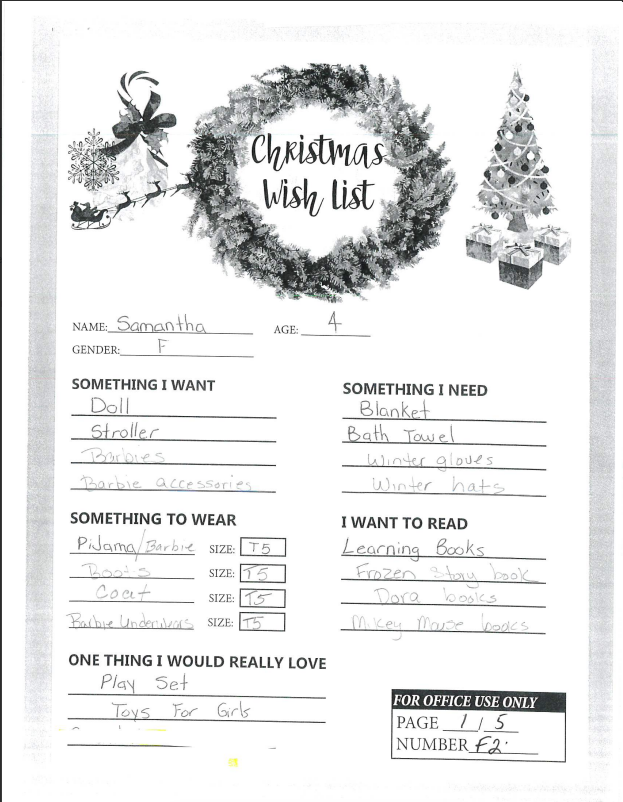 Christmas
Wish List
NAME: Samantha AGE: 4
GENDER: F
SOMETHING I WANT
Doll
Stroller
Barbies
Barbie accessories
SOMETHING I NEED
Blanket
Bath Towel
Winter gloves
Winter hats
SOMETHING TO WEAR
Pijama/Barbie SIZE: T5
Boots SIZE: T5
Coat SIZE: T5
Barbie Underwars SIZE: T5
I WANT TO READ
Learning Books
Frozen Story book
Dora books
Mikey Mouse books
ONE THING I WOULD REALLY LOVE
Play Set
Toys For Girls
FOR OFFICE USE ONLY
PAGE 1 / 5
NUMBER F2